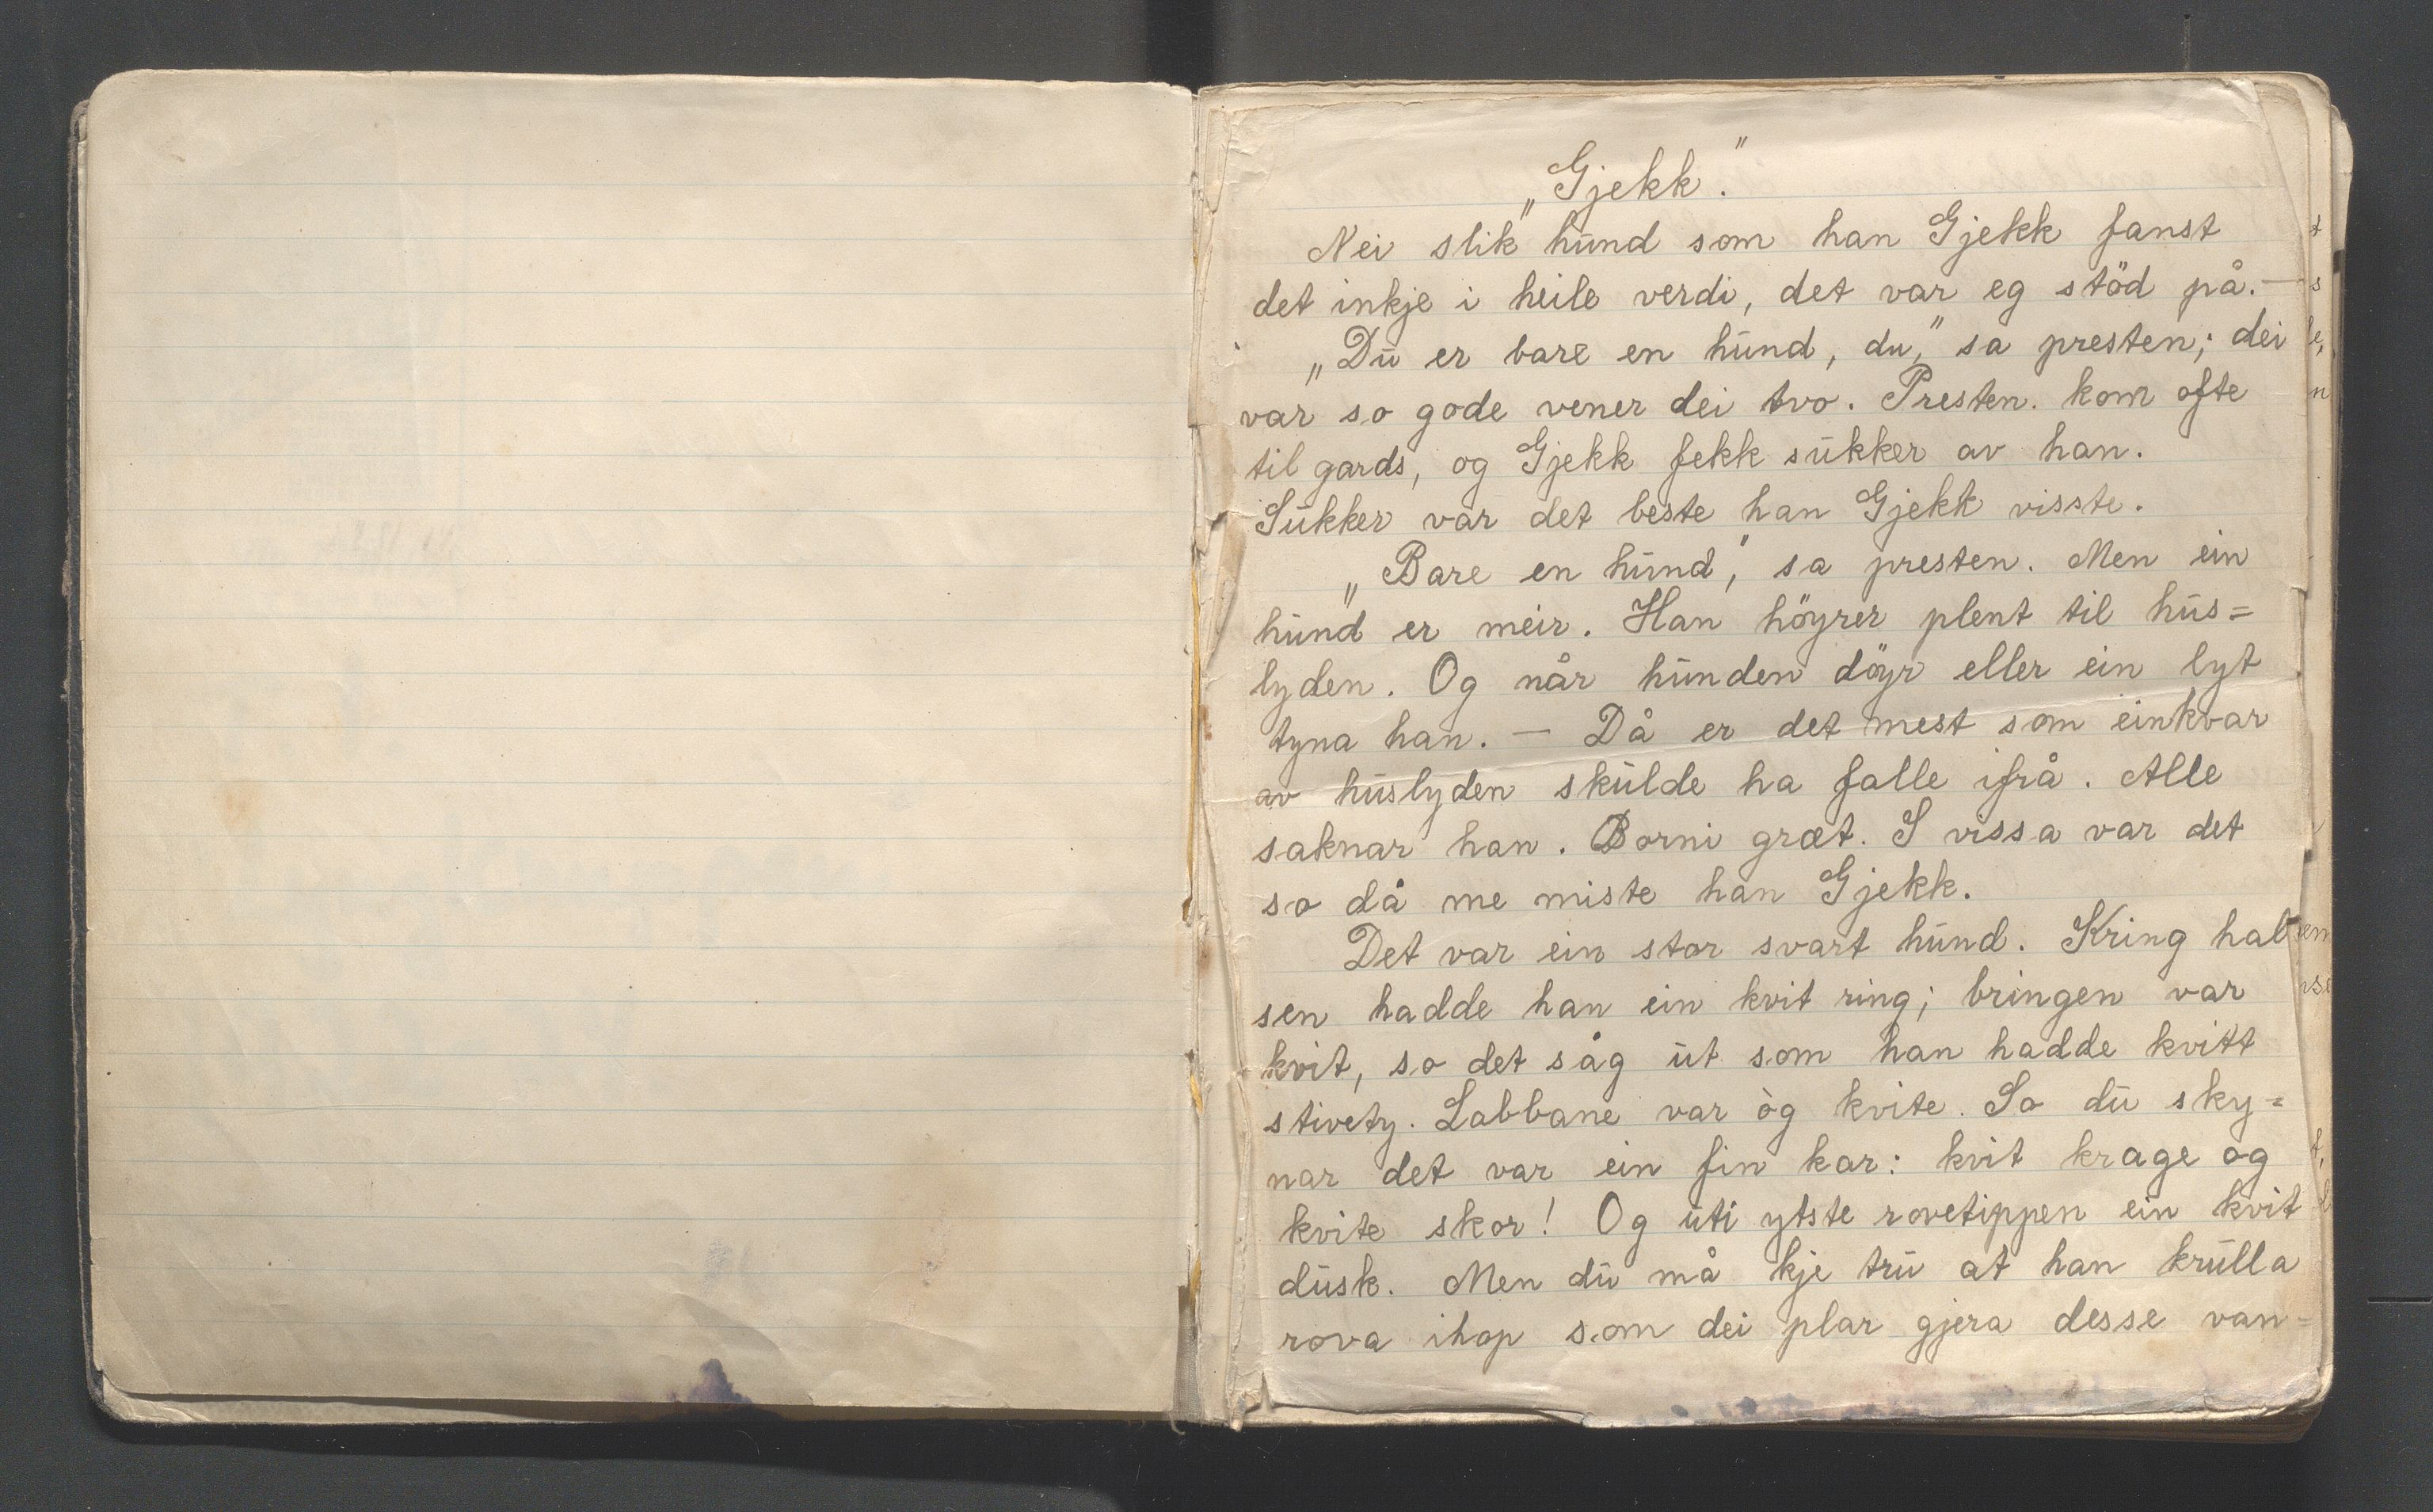 „Gjekk."
Nei slik hund som han Gjekk fanst
det inkje i heile verdi, det var eg stöd på. —
„Du er bare en hund, du," sa presten; dei
var so gode vener dei tvo. Presten. kom ofte
til gards, og Gjekk fekk sukker av han.
Sukker var det beste han Gjekk visste.
„Bare en hund", sa presten. Men ein
hund er meir. Han höyrer plent til hus=
lyden. Og når hunden döyr eller ein lyt
tyna han. — Då er det mest som einkvar
av huslyden skulde ha falle ifrå. Alle
saknar han. Borni græt. I vissa var det
so då me miste han Gjekk.
Det var ein stor svart hund. Kring hal-
sen hadde han ein kvit ring; bringen var
kvit, so det såg ut som han hadde kvitt
stivety. Labbane var òg kvite. So du sky=
nar det var ein fin kar: kvit krage og
kvite skor! Og uti ytste rovetippen ein kvit
dusk. Men du må kje tru at han krulla
rova ihop som dei plar gjera desse van=